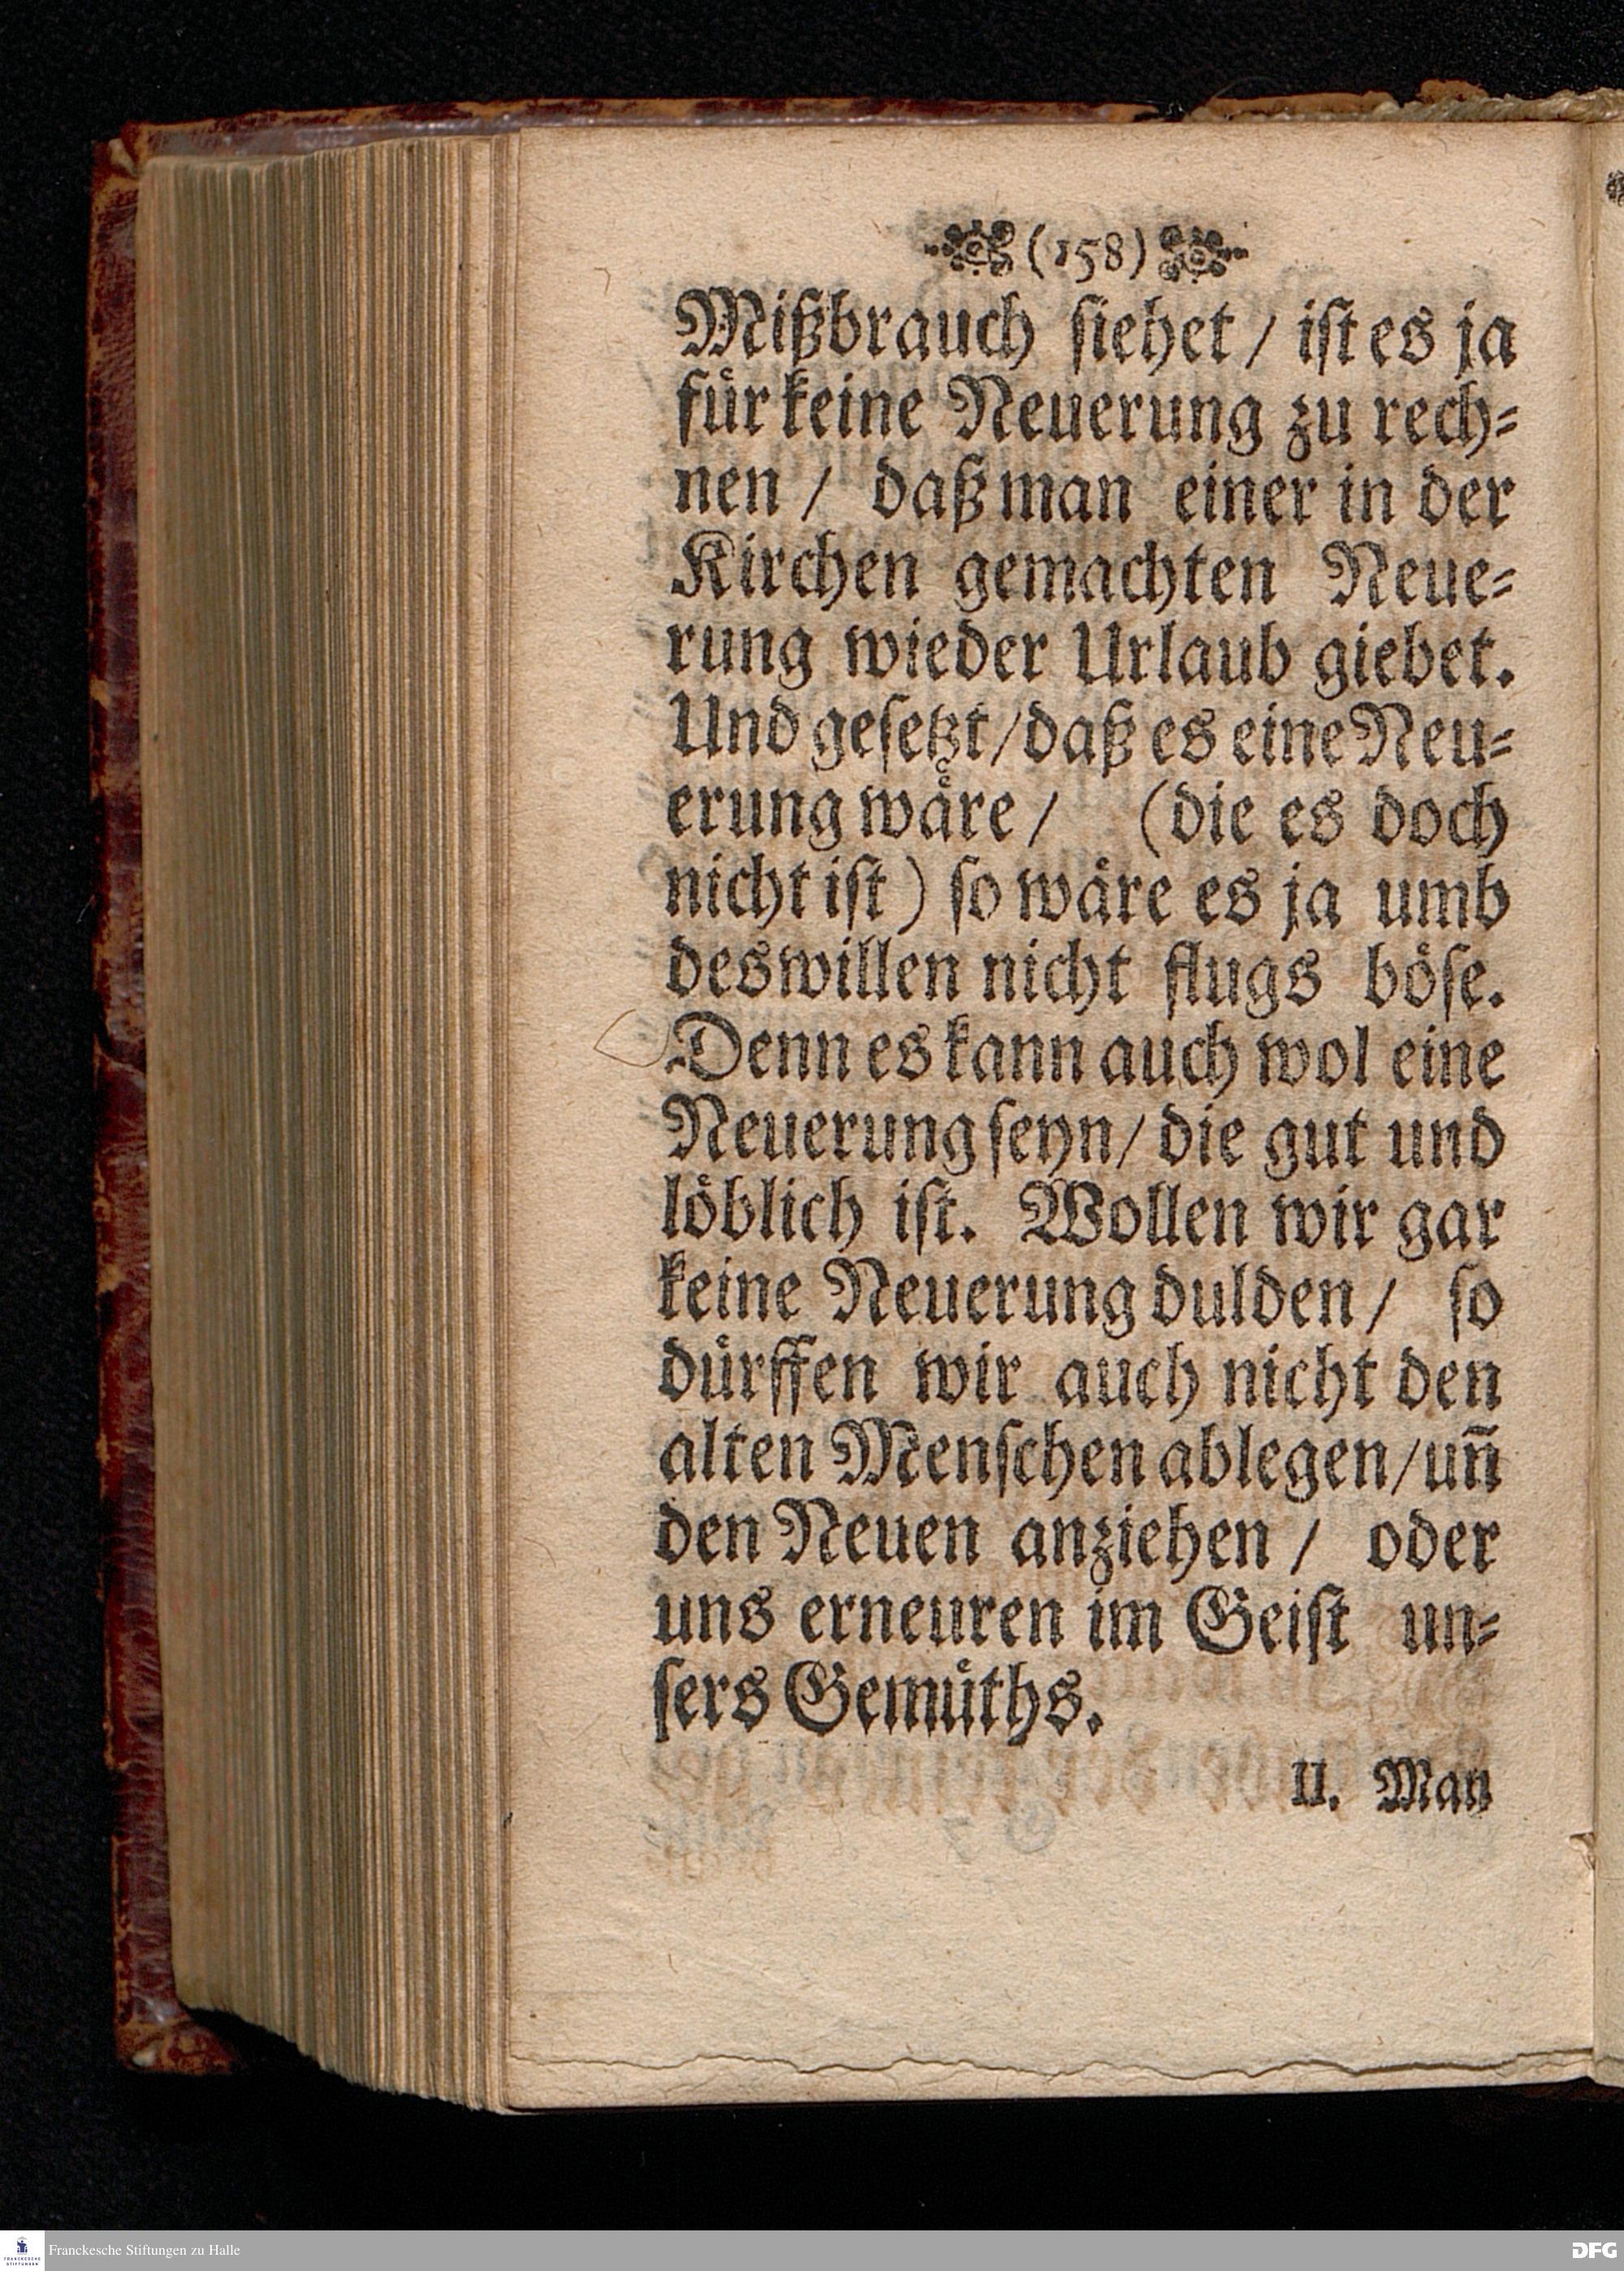 (158)
Mißbrauch siehet/ ist es ja
für keine Neuerung zu rech-
nen/ daß man einer in der
Kirchen gemachten Neue-
rung wieder Urlaub giebet.
Und gesetzt/daß es eine Neu-
erung wäre/ (die es doch
nicht ist) so wäre es ja umb
deswillen nicht flugs böse.
Denn es kann auch wol eine
Neuerung seyn/ die gut und
löblich ist. Wollen wir gar
keine Neuerung dulden/ so
dürffen wir auch nicht den
alten Menschen ablegen/un̄
den Neuen anziehen/ oder
uns erneuren im Geist un-
sers Gemüths.
II. Man
FRANCKESCHE
STIFTUNGEN
Franckesche Stiftungen zu Halle
DFG